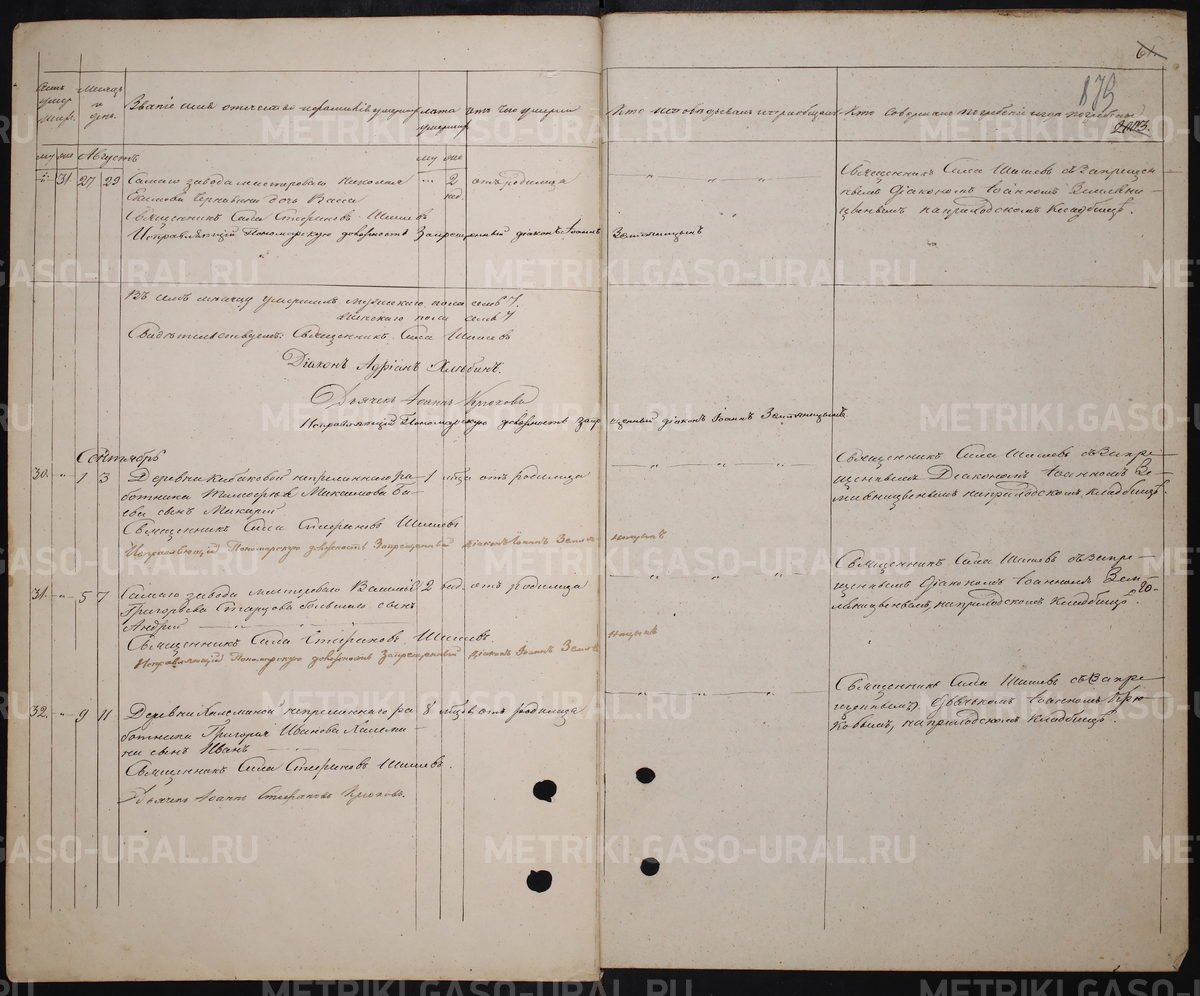 61.
179
Счетъ умер шихъ.
Мѣсяцъ и день.
Званіе имя отечество и фамилія умершаго
лѣта умершаго
отъ чего умеръ
Кто исповѣдывалъ и пріобщалъ
Кто совершалъ погребеніе и гдѣ погребены
му жен Августъ му жен
" 31. 27 29 Самаго завода мастероваго Николая ... 2 отъ родимца
Екимова дочь Васса нед
Священникъ Сила Стефановъ Шишевъ
Исправляющій Пономарскую должность Запрещенный діаконъ Іоаннъ Земляницынъ
Священникъ Сила Шишевъ съ Запрещен
нымъ Діакономъ Іоанномъ Земляни-
цынымъ на приходскомъ кладбищѣ.
Въ семъ мѣсяцѣ умершихъ мужескаго пола семь 7.
женскаго пола семь 7
Свидѣтельствуемъ: Священникъ Сила Шишевъ
Діаконъ Адріанъ Хлѣбинъ.
Дьячекъ Іоаннъ Крюковъ
Исправляющій Пономарскую должность запрещенный діаконъ Іоаннъ Земляницынъ
Сентябрь
30. " 1 3 Деревни Кабаковой непремѣннаго ра- 1 мѣсяца отъ родимца
ботника Тимоѳея Максимова Ба-
ева сынъ Макарій
Священникъ Сила Стефановъ Шишевъ
Исправляющій Пономарскую должность Запрещенный діаконъ Іоаннъ Земляницынъ
Священникъ Сила Шишевъ съ Запре-
щеннымъ Діакономъ Іоанномъ Зе-
мляницынымъ на приходскомъ кладбищѣ.
31. " 5 7 Самаго завода мастероваго Василія 2 нед. отъ родимца
Григорьева Старцова сынъ
Андрей
Священникъ Сила Стефановъ Шишевъ.
Исправляющій Пономарскую должность Запрещенный діаконъ Іоаннъ Земляницынъ
Священникъ Сила Шишевъ съ Запре-
щеннымъ Діакономъ Іоанномъ Зем-
ляницынымъ, на приходскомъ кладбищѣ.
32. " 9 11 Деревни непремѣннаго ра 8 мѣсяцевъ отъ родимца
ботника Григорія Иванова
на сынъ Иванъ
Священникъ Сила Стефановъ Шишевъ.
Дьячекъ Іоаннъ Стефановъ Крюковъ.
Священникъ Сила Шишевъ съ
Дьячкомъ Іоанномъ Крю
ковымъ, на приходскомъ кладбищѣ.
METRIKI.GASO-URAL.RU